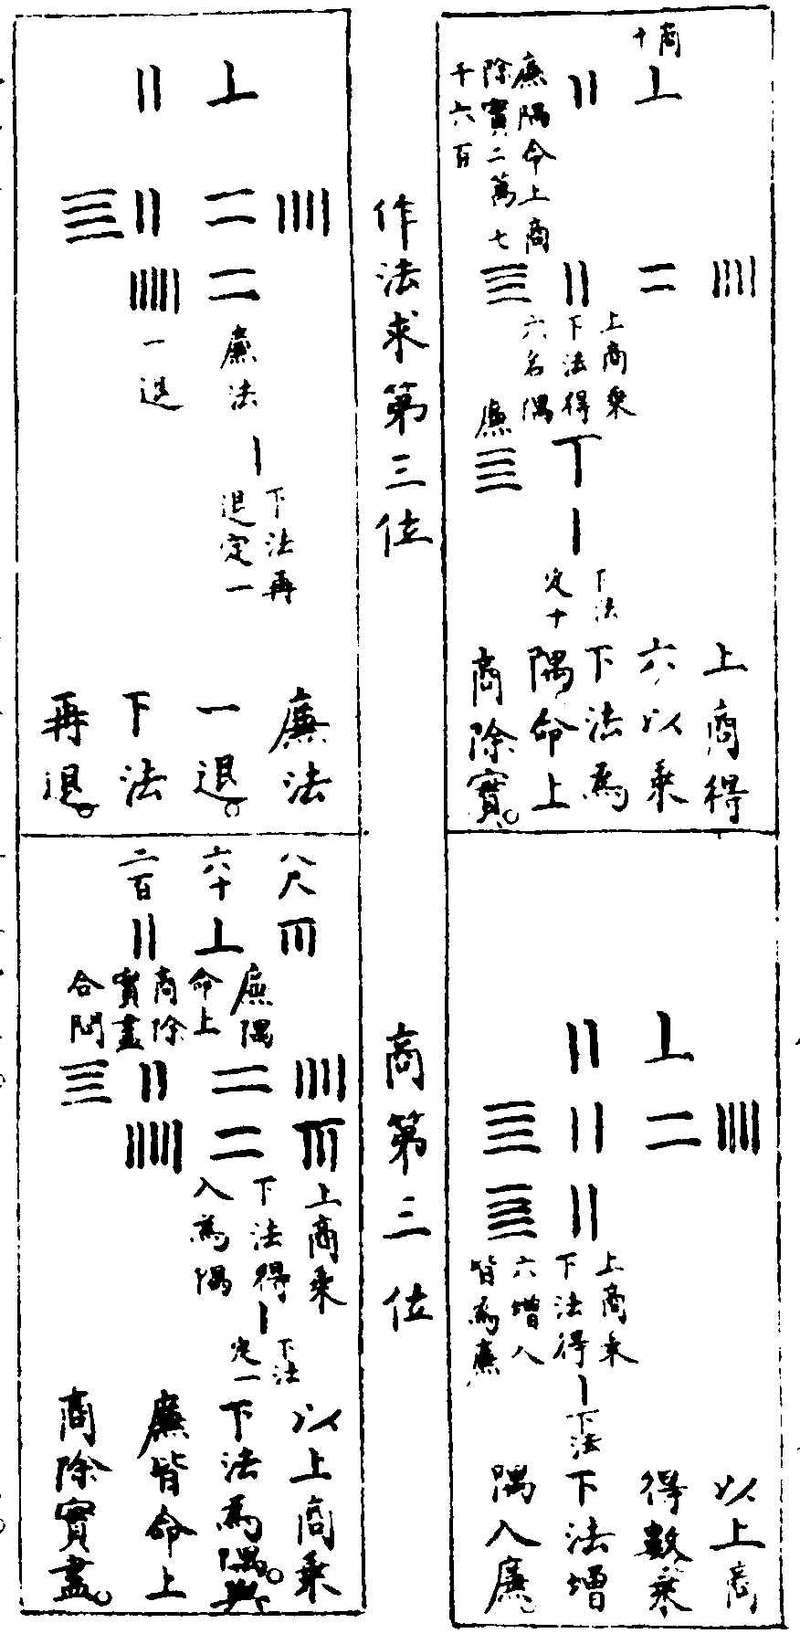 商
十
廉隅命上商
除實二萬七
千六百
上商乘
下法得
六名隅
廉
下法
定十
上商得
六以乘
下法為
隅命上
商除實。
上商乘
下法得
六增入
皆為廉
下法
以上商
得數乘
下法增
隅入廉。
作法求第三位
商第三位
廉法
一退
下法再
退定一
廉法
一退。
下法
再退。
八尺
六十
二百
廉隅
命上
商除
實盡
合問
上商乘
下法得
八為隅
下法
定一
以上商乘
下法為隅。與
廉皆命上
商除實盡。